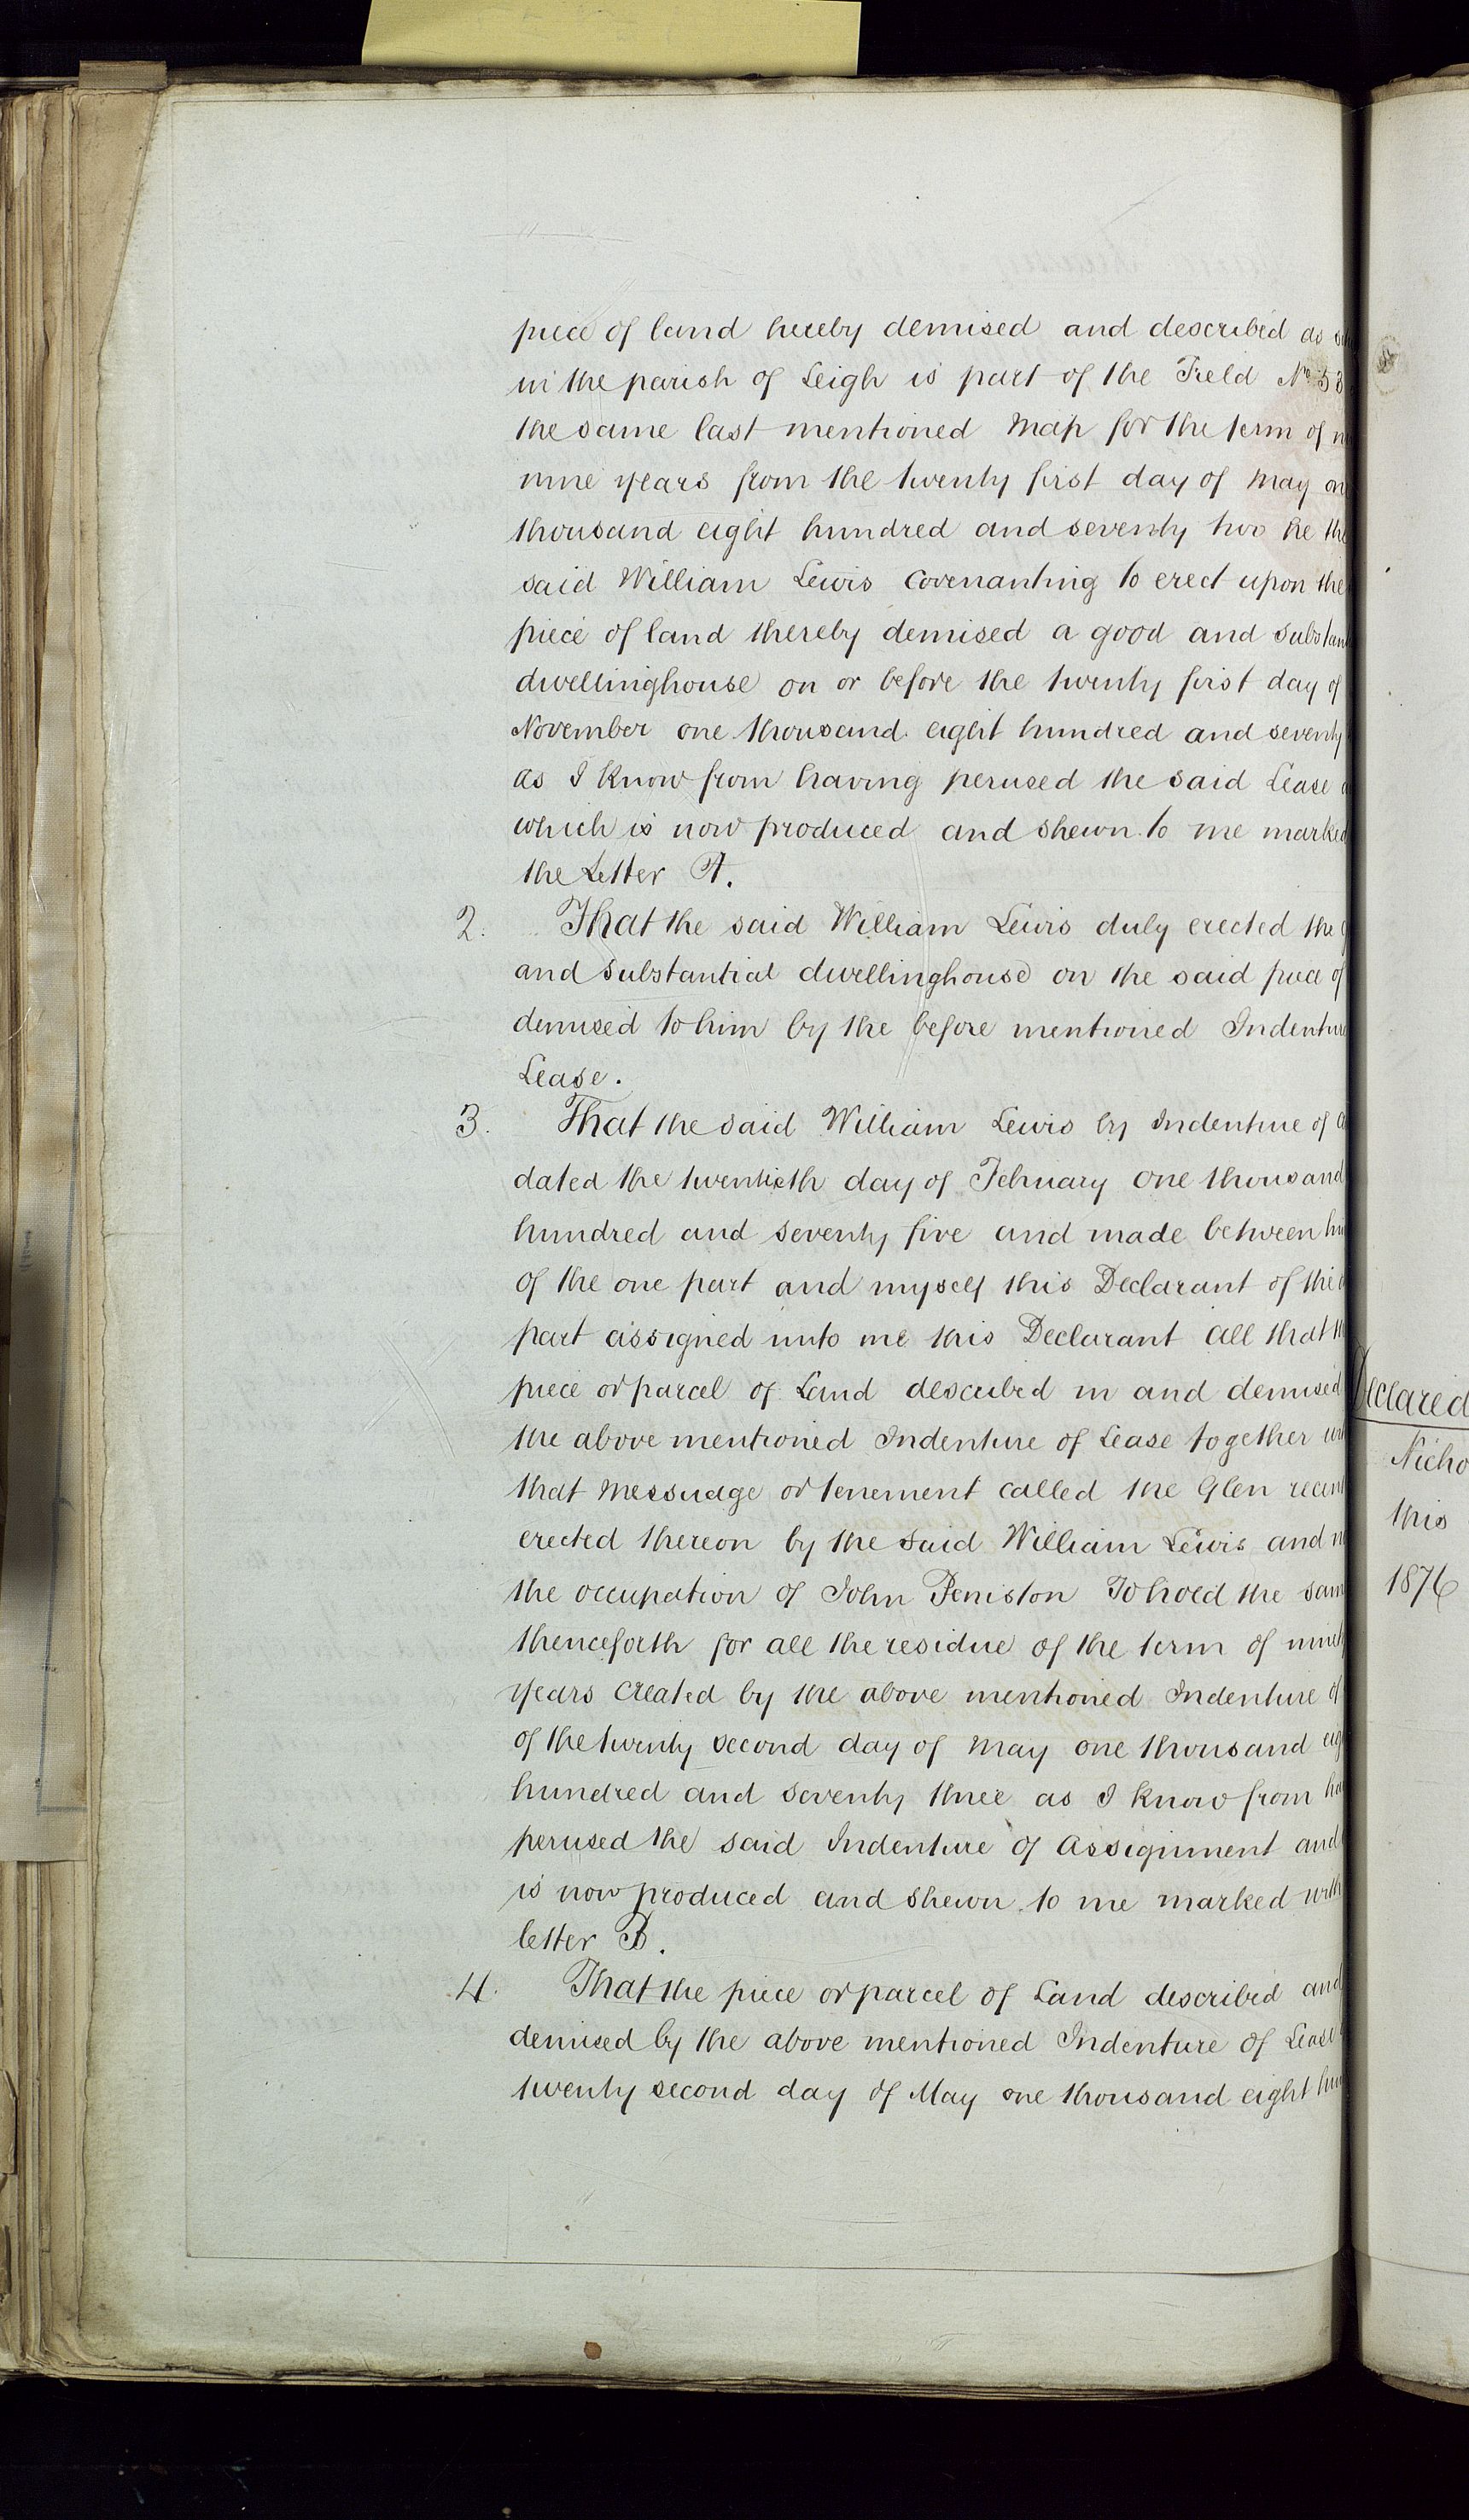 piece of land hereby demised and described as
in the parish of Leigh is part of the Field No 53
the same last mentioned Map for the term of
nine years from the twenty first day of May
thousand eight hundred and seventy two he the
said William Lewis covenanting to erect upon the
piece of land thereby demised a good and substan
dwellinghouse on or before the twenty first day of
November one thousand eight hundred and seventy
as I know from having perused the said Lease
which is now produced and shewn to me marked
the Letter A.
2. That the said William Lewis duly erected the
and substantial dwellinghouse on the said piece of
demised to him by the before mentioned Indenture
Lease.
3. That the said William Lewis by Indenture of
dated the twentieth day of February one thousand
hundred and seventy five and made between
of the one part and myself this Declarant of the
part assigned unto me this Declarant all that
piece or parcel of Land described in and demised
the above mentioned Indenture of Lease together
that Messuage or tenement called the Glen recent
erected thereon by the said William Lewis and
the occupation of John Peniston To hold the sam
thenceforth for all the residue of the term of ninety
years created by the above mentioned Indenture of
of the twenty second day of May one thousand eig
hundred and seventy three as I know from ha
perused the said Indenture of Assignment and
is now produced and shewn to me marked with
letter B.
4. That the piece or parcel of Land described and
demised by the above mentioned Indenture of Lease
twenty second day of May one thousand eight hun
Declared
Nicho
this
1876